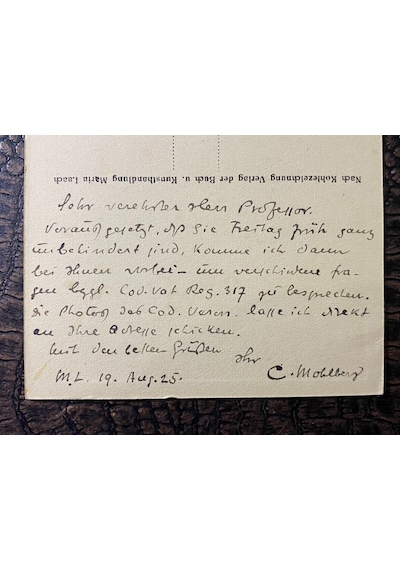 Nach Kohlezeichnung Verlag der Buch u. Kunsthandlung Maria Laach
Sehr verehrter Herr Professor.
Vorausgesetzt, daß Sie Freitag früh ganz
unbehindert sind, komme ich dann
bei Ihnen vorbei – um verschiedene Fra-
gen bzgl. Cod. Vat Reg. 317 zu besprechen.
Die Photos des Cod. Veron. lasse ich direkt
an Ihre Adresse schicken.
Mit den besten Grüßen
Ihr
M.L. 19. Aug. 25. C. Mohlberg